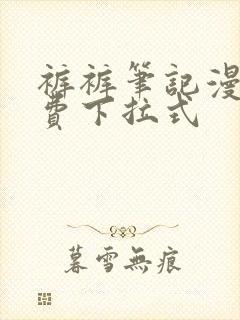 裤裤筆記漫
費下拉式
暮雪無痕